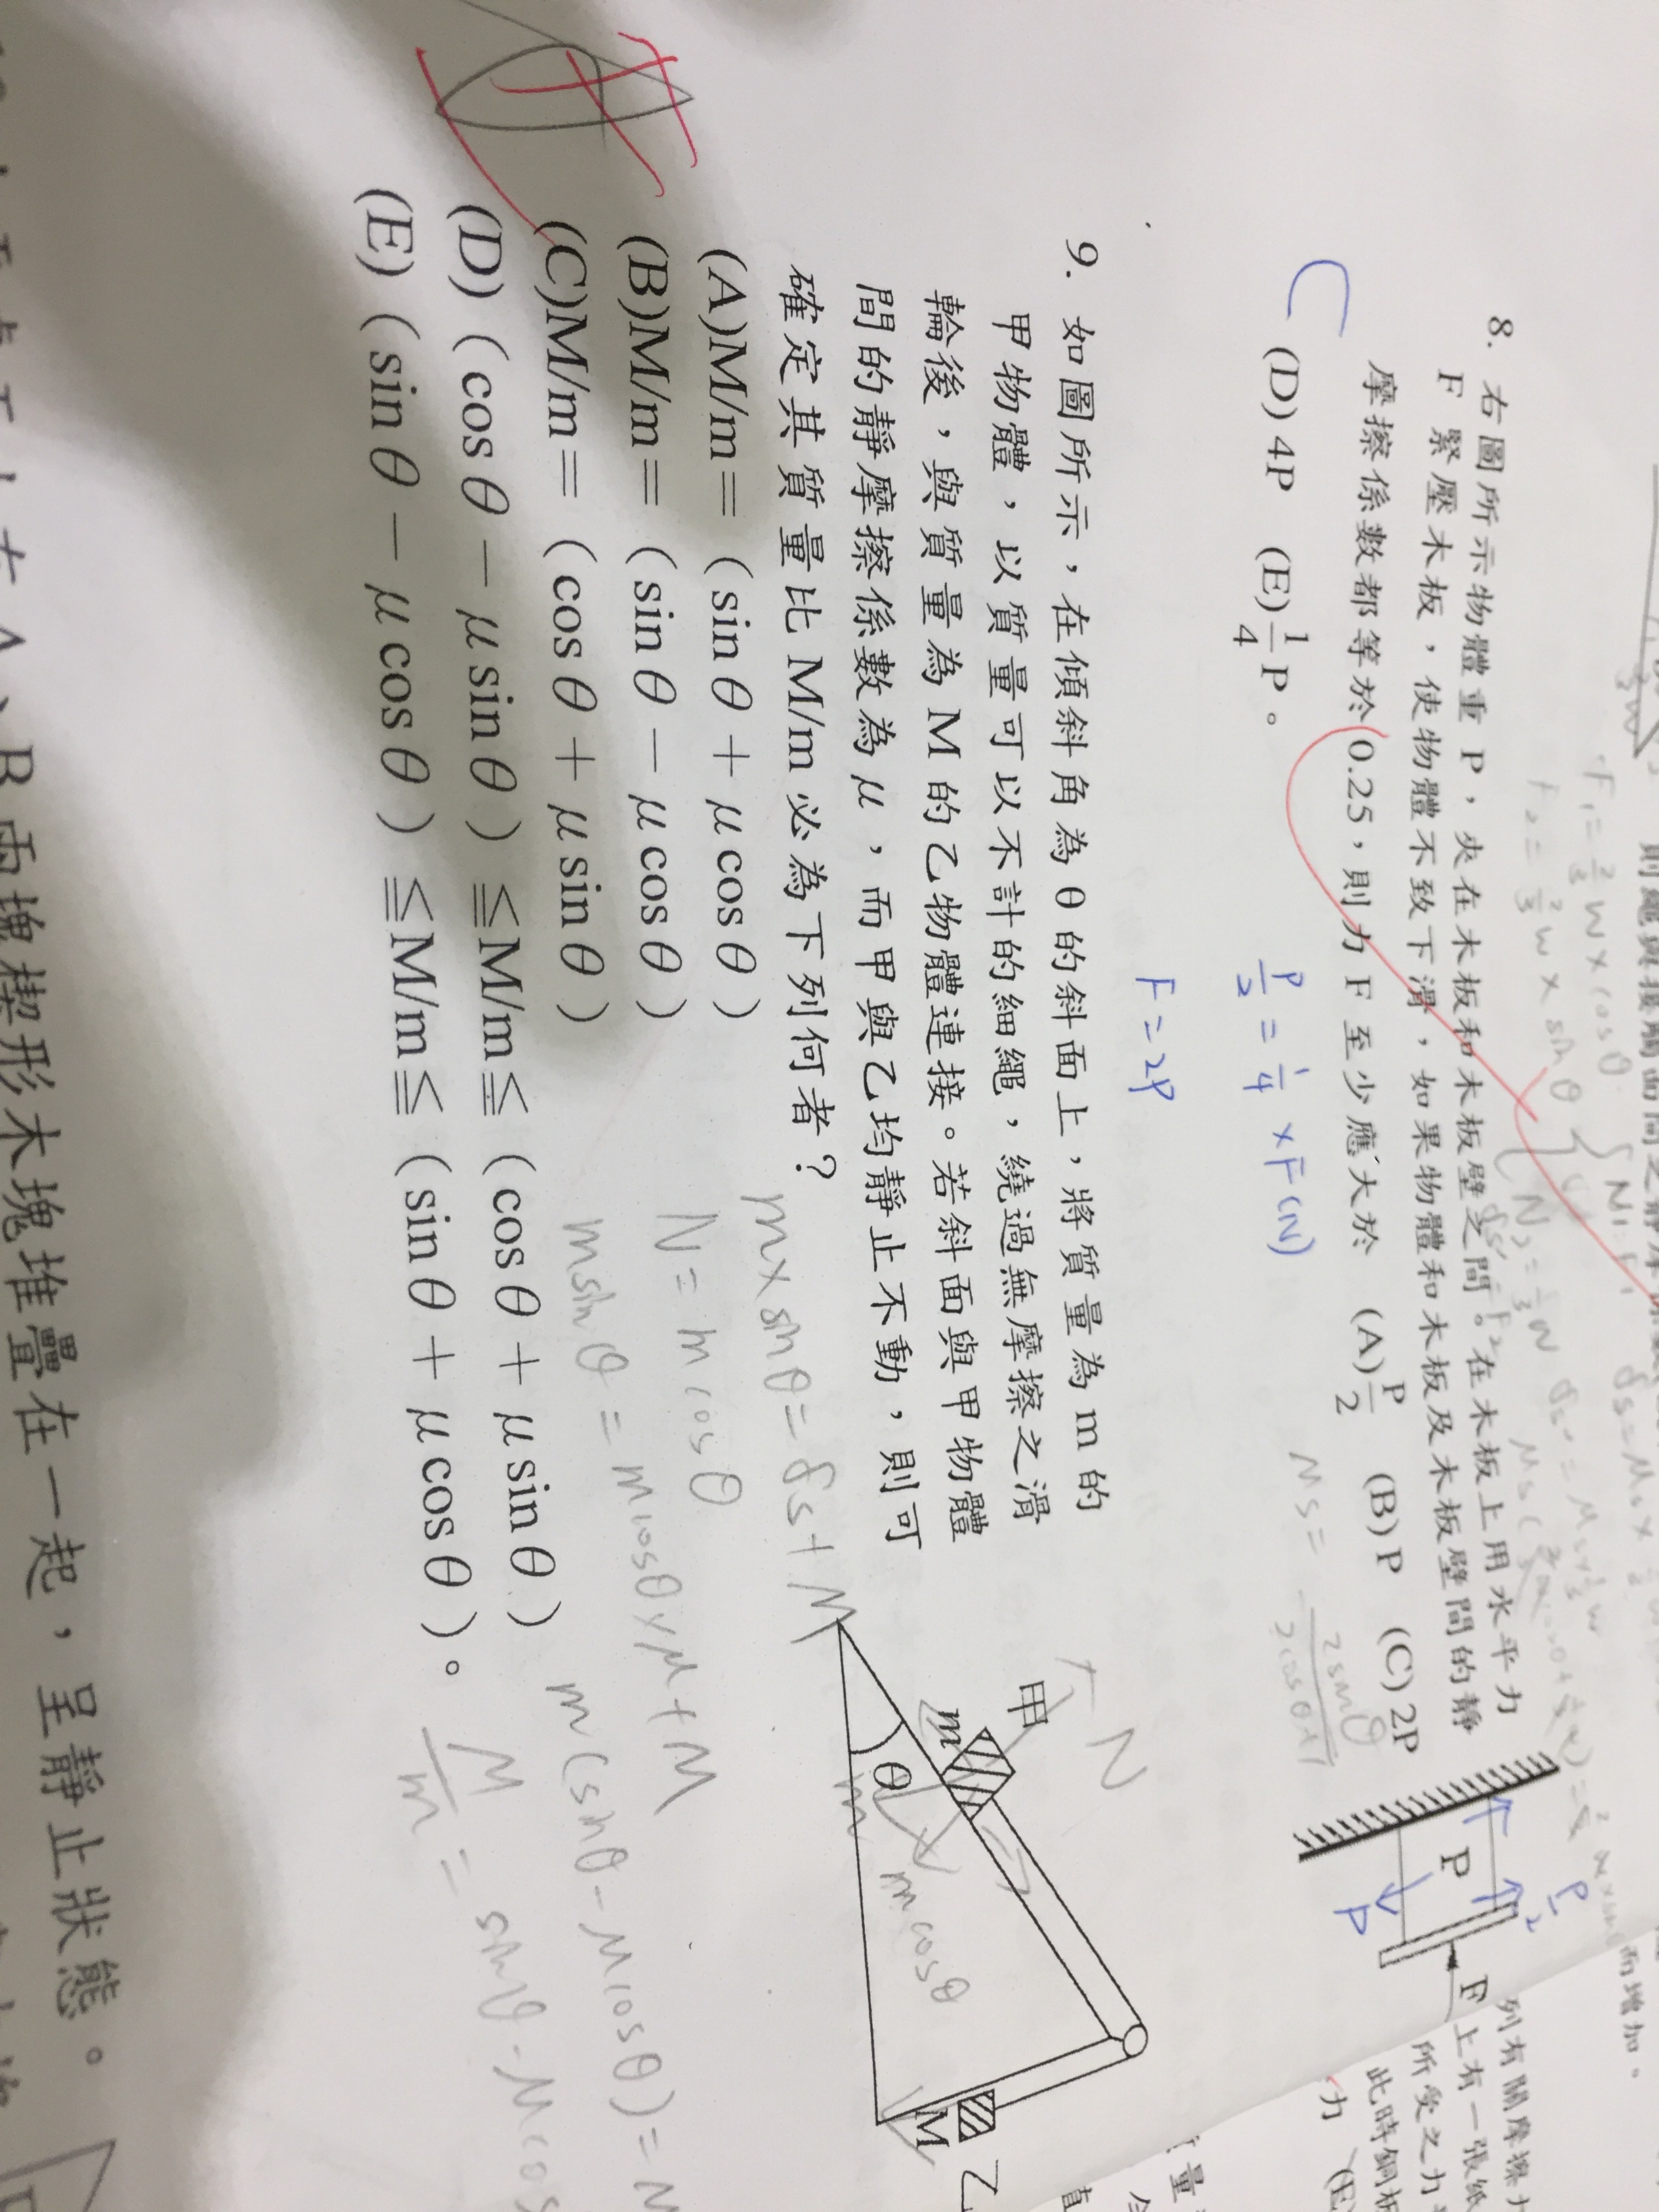 8. 右圖所示物體重 P，夾在木板和木板壁之間。在木板上用水平力
F 緊壓木板，使物體不致下滑，如果物體和木板及木板壁間的靜
摩擦係數都等於 0.25，則力 F 至少應大於 (A) P/2 (B) P (C) 2P
(D) 4P (E) 1/4 P。
C
P/2 = 1/4 × F(N)
F = 2P
P
F
P/2
P
9. 如圖所示，在傾斜角為 θ 的斜面上，將質量為 m 的
甲物體，以質量可以不計的細繩，繞過無摩擦之滑
輪後，與質量為 M 的乙物體連接。若斜面與甲物體
間的靜摩擦係數為 μ，而甲與乙均靜止不動，則可
確定其質量比 M/m 必為下列何者？
(A)M/m=（sin θ + μ cos θ）
(B)M/m=（sin θ − μ cos θ）
(C)M/m=（cos θ + μ sin θ）
(D)（cos θ − μ sin θ）≦M/m≦（cos θ + μ sin θ）
(E)（sin θ − μ cos θ）≦M/m≦（sin θ + μ cos θ）。
甲
m
θ
M
乙
N
m cosθ
m × sinθ = fs + M
N = m cosθ
m sinθ = m cosθ × μ + M
m(sinθ − μ cosθ) = M
M/m = sinθ − μ cos
B 兩塊楔形木塊堆疊在一起，呈靜止狀態。
而增加。
上有一張紙
所受之力
此時銅板